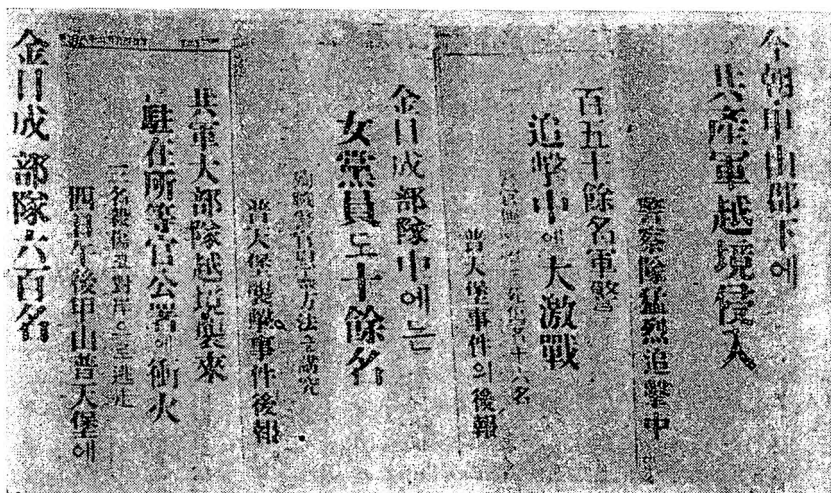 今朝甲山郡下에
共産軍越境侵入
警察隊猛烈追擊中
百五十餘名軍警
追擊中에大激戰
死傷者十八名
普天堡事件의後報
金日成部隊中에는
女黨員도十餘名
殉職警官 方法을講究
普天堡襲擊事件後報
共軍大部隊越境襲來
駐在所等官公署에衝火
三名殺傷코對岸으로逃走
四日午後甲山普天堡에
金日成部隊六百名